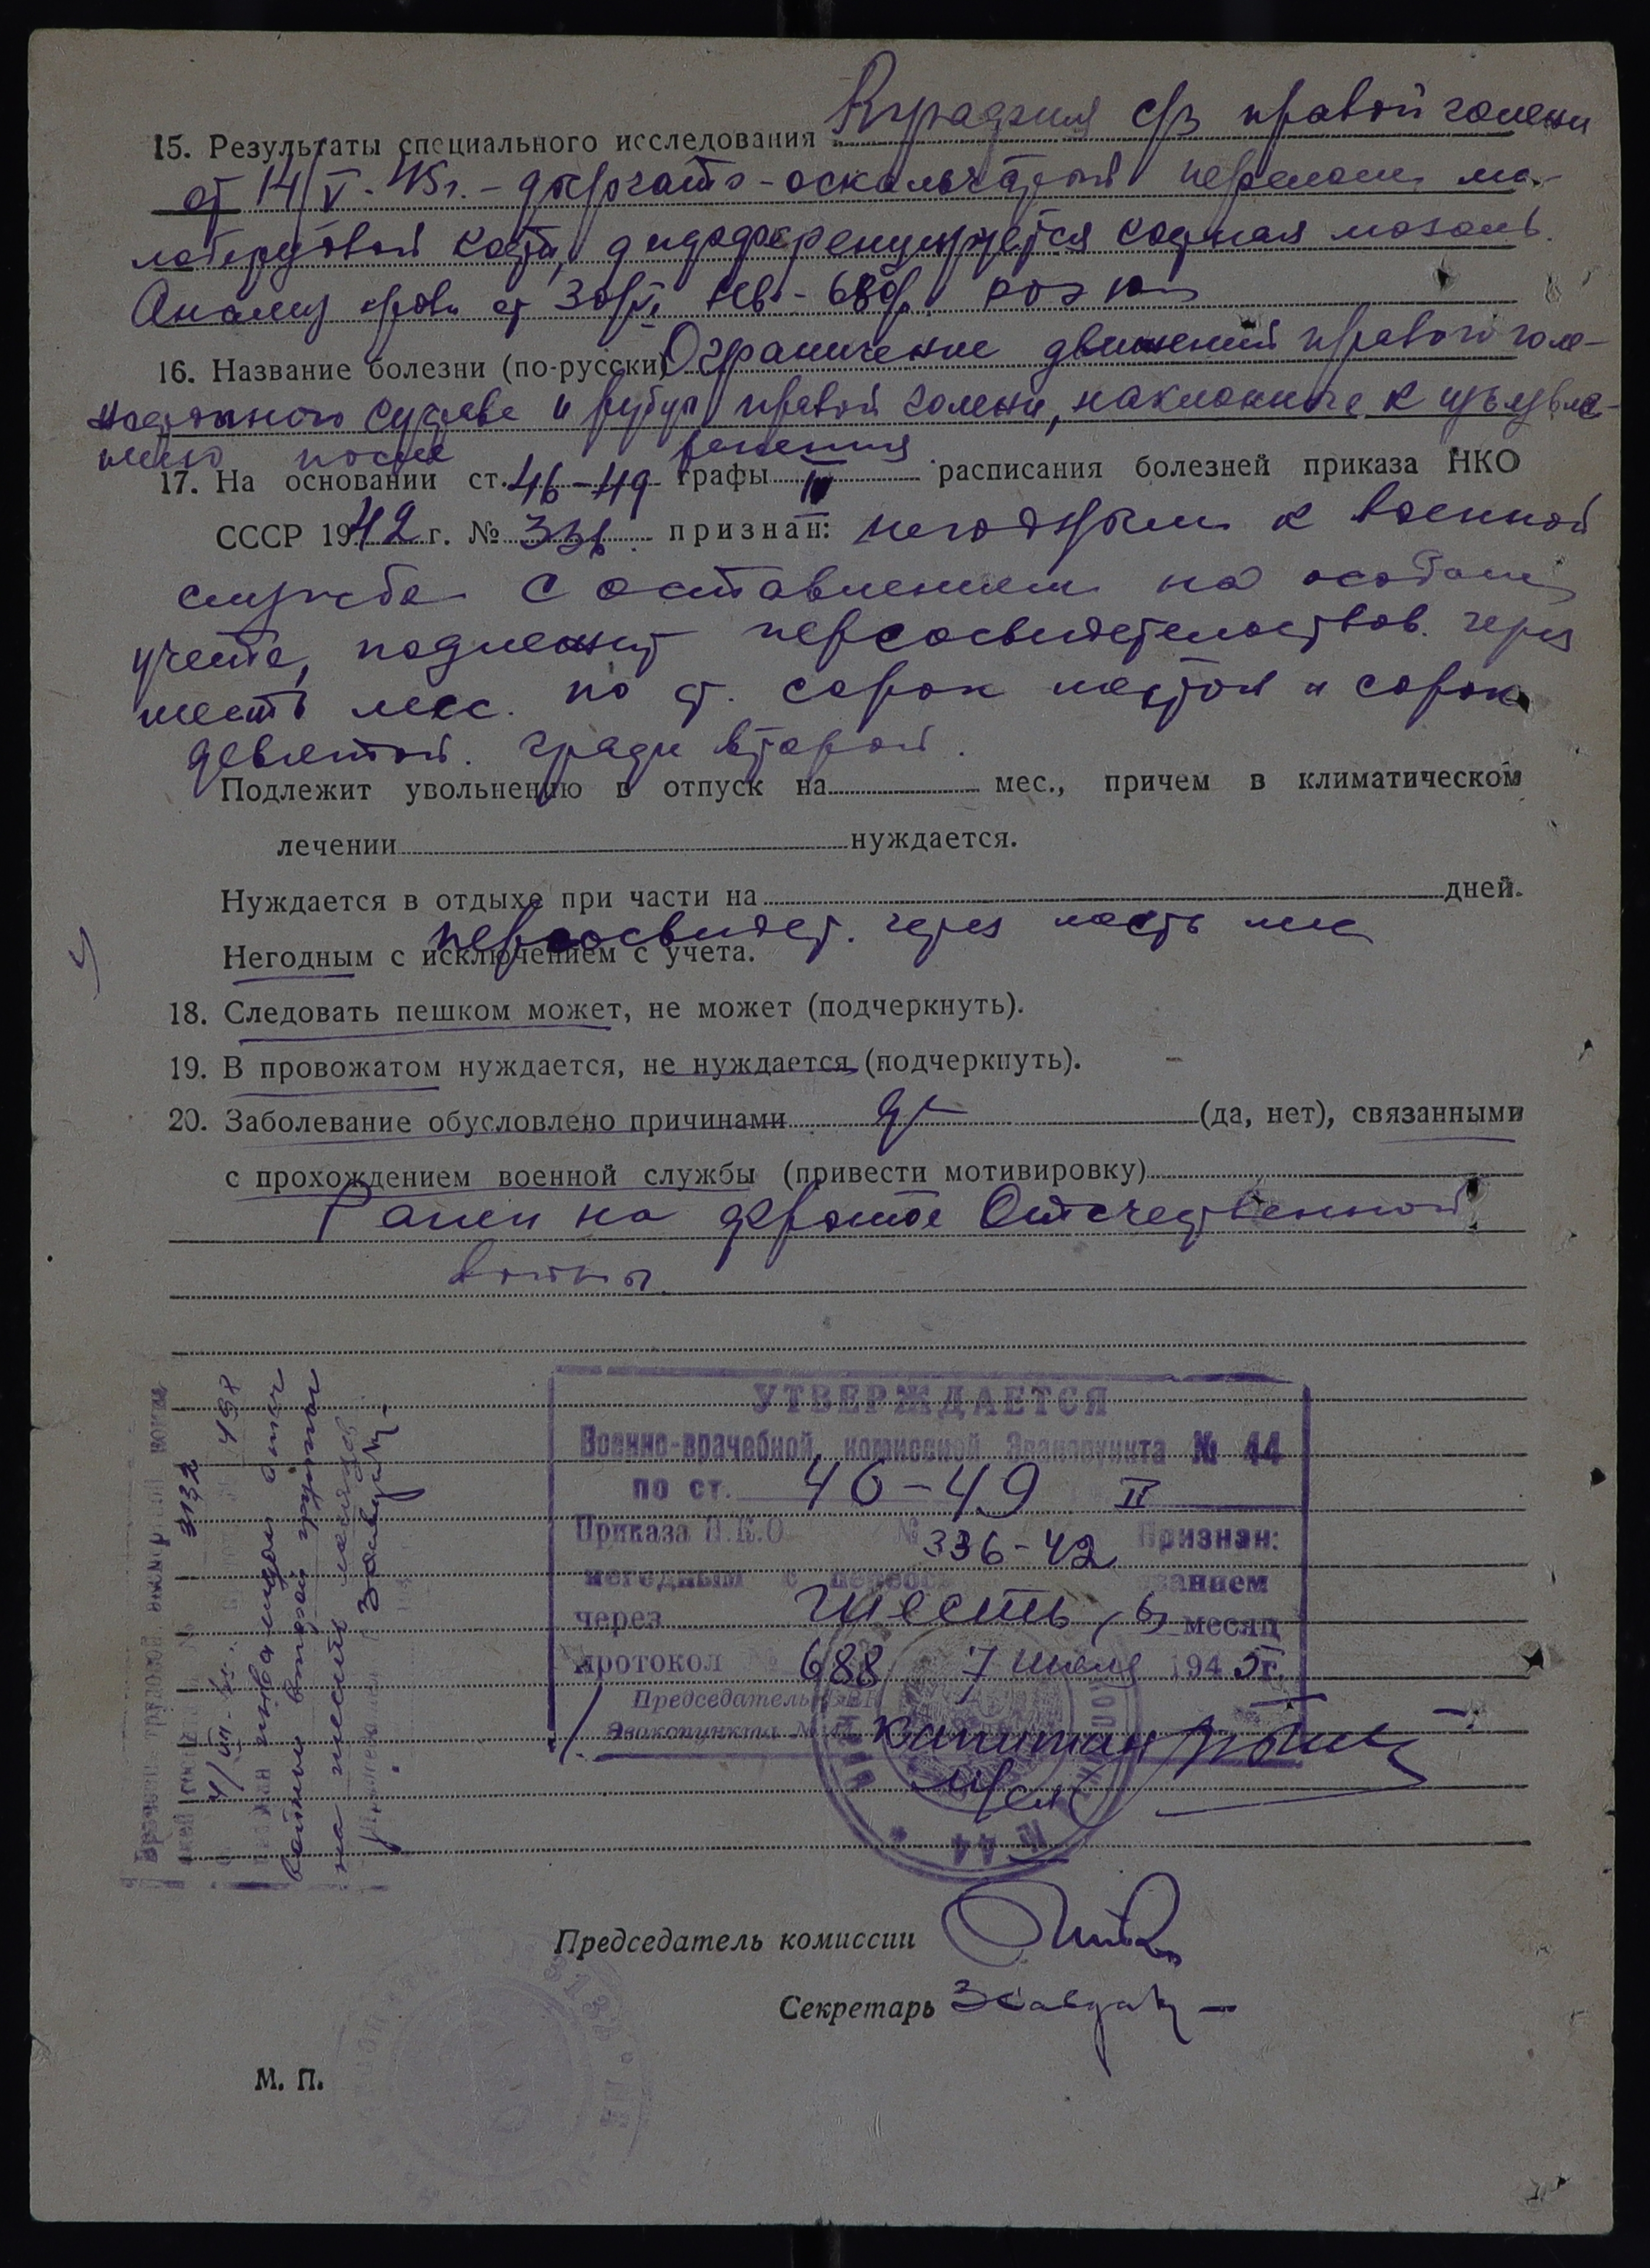 15. Результаты специального исследования с/з правой голени
от 14/V-45г. – дырчато-оскольчатый перелом ма-
лоберцовой кости, диференцируется костная мозоль.
Анализ крови от 30/VI Нв-68% РОЭ
16. Название болезни (по-русски) Ограничение движений правого голе-
ностопного сустава и рубцы правой голени, наклонные к изъязвле-
нию после ранения
17. На основании ст. 46-49 графы II расписания болезней приказа НКО
СССР 1942 г. № 336 признан: негодным к военной
службе с оставлением на особом
учете, подлежит переосвидетельствов. через
шесть мес. по ст. сорок шестой и сорок
девятой графы второй.
Подлежит увольнению в отпуск на мес., причем в климатическом
лечении нуждается.
Нуждается в отдыхе при части на дней.
переосвидет. через шесть мес
Негодным с исключением с учета.
18. Следовать пешком может, не может (подчеркнуть).
19. В провожатом нуждается, не нуждается (подчеркнуть).
20. Заболевание обусловлено причинами да (да, нет), связанными
с прохождением военной службы (привести мотивировку)
Ранен на фронте Отечественной
войны.
УТВЕРЖДАЕТСЯ
Военно-врачебной комиссией Эвакопункта № 44
по ст. 46-49 II
Приказа Н.К.О № 336-42 Признан:
негодным с
через шесть (6) месяц
протокол № 688 7 июля 1945г.
Председатель
Эвакопункта № 44 капитан
м/сл
№ 44
3132
498
4/VII-45.
инвалидом отеч
войны второй группы
на шесть месяцев
Председатель комиссии
Секретарь
М. П.